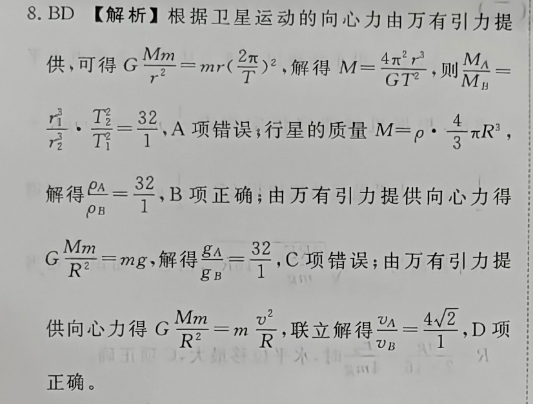 8. BD 【解析】根据卫星运动的向心力由万有引力提
供,可得 G\frac{Mm}{r^2}=mr(\frac{2π}{T})^2,解得 M=\frac{4π^2r^3}{GT^2},则\frac{M_A}{M_B}=
\frac{r_1^3}{r_2^3}·\frac{T_2^2}{T_1^2}=\frac{32}{1},A 项错误;行星的质量 M=ρ·\frac{4}{3}πR^3,
解得\frac{ρ_A}{ρ_B}=\frac{32}{1},B 项正确;由万有引力提供向心力得
G\frac{Mm}{R^2}=mg,解得\frac{g_A}{g_B}=\frac{32}{1},C 项错误;由万有引力提
供向心力得 G\frac{Mm}{R^2}=m\frac{v^2}{R},联立解得\frac{v_A}{v_B}=\frac{4\sqrt{2}}{1},D 项
正确。